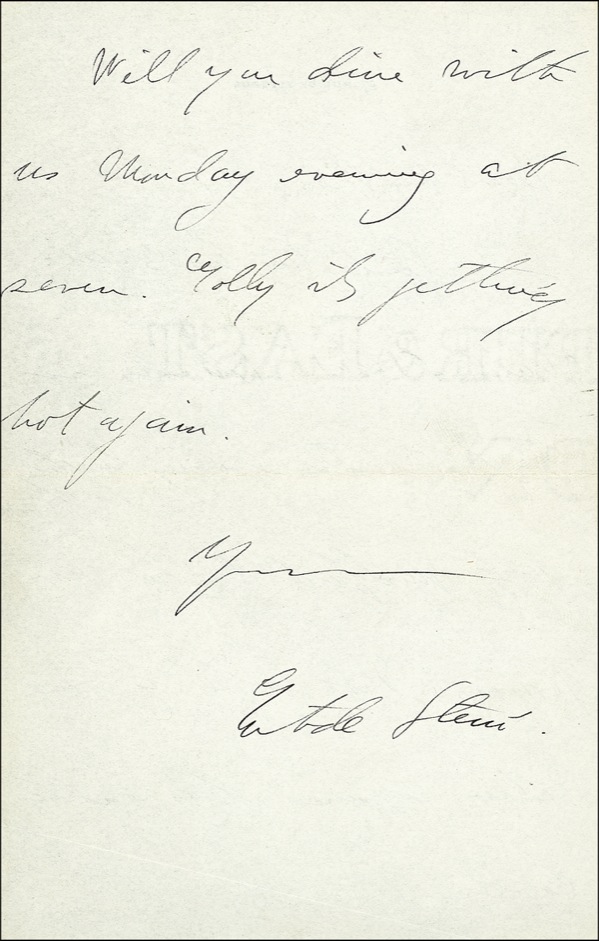 Will you dine with
us Monday evening at
seven. Golly its getting
hot again.
Yours
Gertrude Stein.